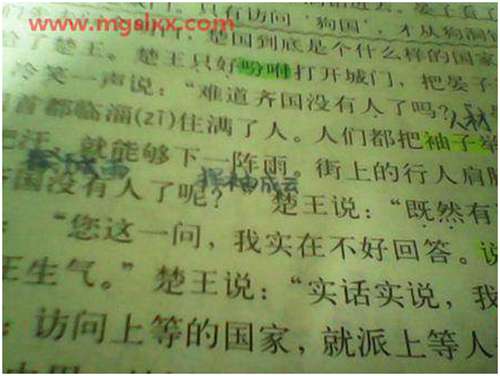 www.mgslxx.com
只有访问“狗国”，才从狗洞
是国到底是个什么样的国家
给了楚王。楚王只好吩咐打开城门，把晏子
冷笑一声说：“难道齐国没有人了吗？
人材
首都临淄(zī)住满了人。人们都把袖子举
把汗，就能够下一阵雨。街上的行人肩
挥袖成云
齐国没有人了呢？”楚王说：“既然有
“您这一问，我实在不好回答。说
王生气。”楚王说：“实话实说，我
：访问上等的国家，就派上等人